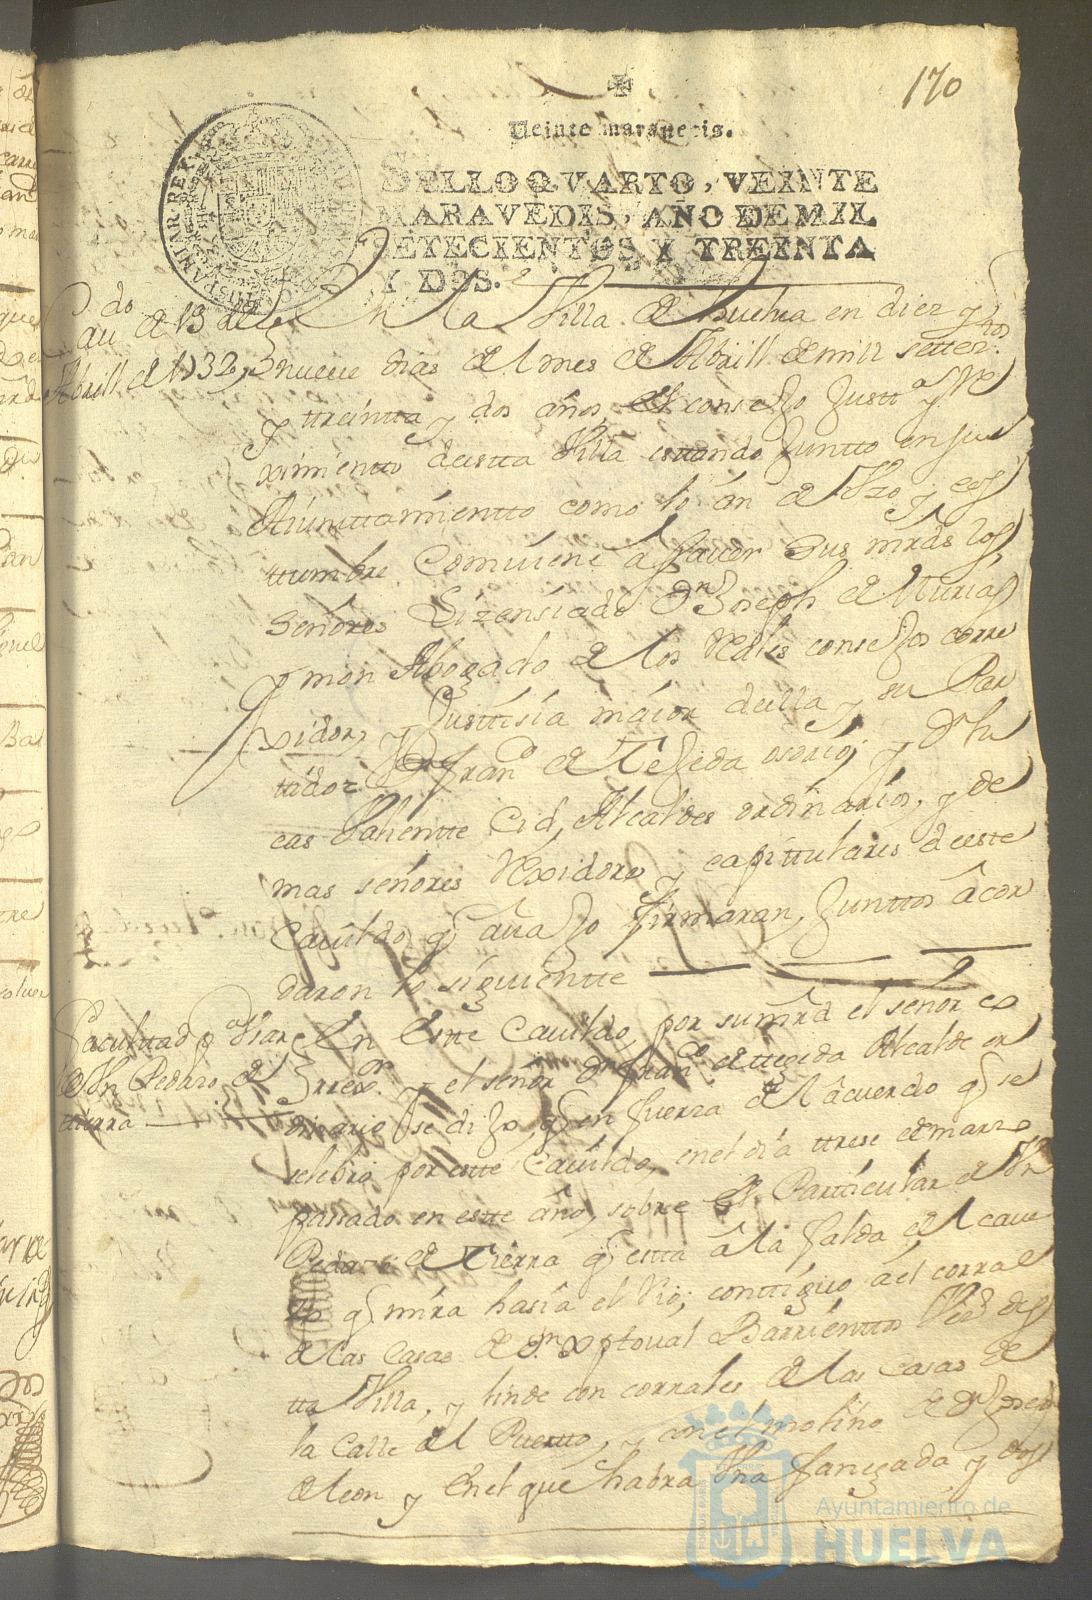 170
Veinte maravedis.
SELLO QVARTO, VEINTE
MARAVEDIS, AÑO DE MIL
SETECIENTOS Y TREINTA
Y DOS.
En la Villa de Huelva en diez y
nueve dias del mes de Abrill de mill settesttos
y treintta y dos años, el consejo Justta y Re
ximientto destta Villa esttando Juntto en su
Aiunttamientto como lo án de Vzo y cos
ttumbre Combiene á sauer Sus mrds los
Señores Lizensiado Dn Joseph de Murias
mon Abogado de los Reales consejos corre
xidor, y Justtisia maior della y su Par
tido= Dn Franco de Tejeda osorio; y Dn Lu
cas Valientte Cid, Alcaldes ordinarios, y de
mas señores Rexidores y capittulares deeste
Cauildo q auajo firmaran, Junttos âcor
daron lo siguientte
Cau do de 19 de
Abrill de 1732
En Estte Cauildo, por sumrd el señor co
rrexor y el señor Dn Franco de ttegeda Alcalde or
dinario se dijo, q en fuerza del âcuerdo q se
selebró por estte Cauildo, en el día ttrese de marzo
passado en estte año, sobre el Partícular del Vn
Pedazo de Tierra q estta â la falda del caue
zo q mira hasia el Rio; conttiguo â el corral
de las Casas de Dn Xptoual Barrienttos Vezo des
tta Villa, y linde con corrales de las Casas de
la Calle del Puertto, y con el molino de Dn Joseph
de leon y En el que habra Vna fanegada y dos
Facultad pa
Vn Pedazo de
ttierra
Ayuntamiento de
HUELVA